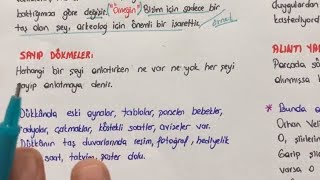 baktığımıza göre değişir. "Örneğin" Bizim için sadece bir
taş olan şey, arkeolog için önemli bir işarettir.
örnek
SAYIP DÖKMELER:
Herhangi bir şeyi anlatırken ne var ne yok her şeyi
sayıp anlatmaya denir.
Dükkânda eski aynalar, tablolar, porselen bebekler,
radyolar, çakmaklar, köstekli saatler, avizeler var.
Dükkânın taş duvarlarında resim, fotoğraf, hediyelik
saat, takvim, poster dolu.
duyguları
kastediyor
ALINTI YA
Parçada,
alınmışsa
Bunda
Orhan Veli
Garip